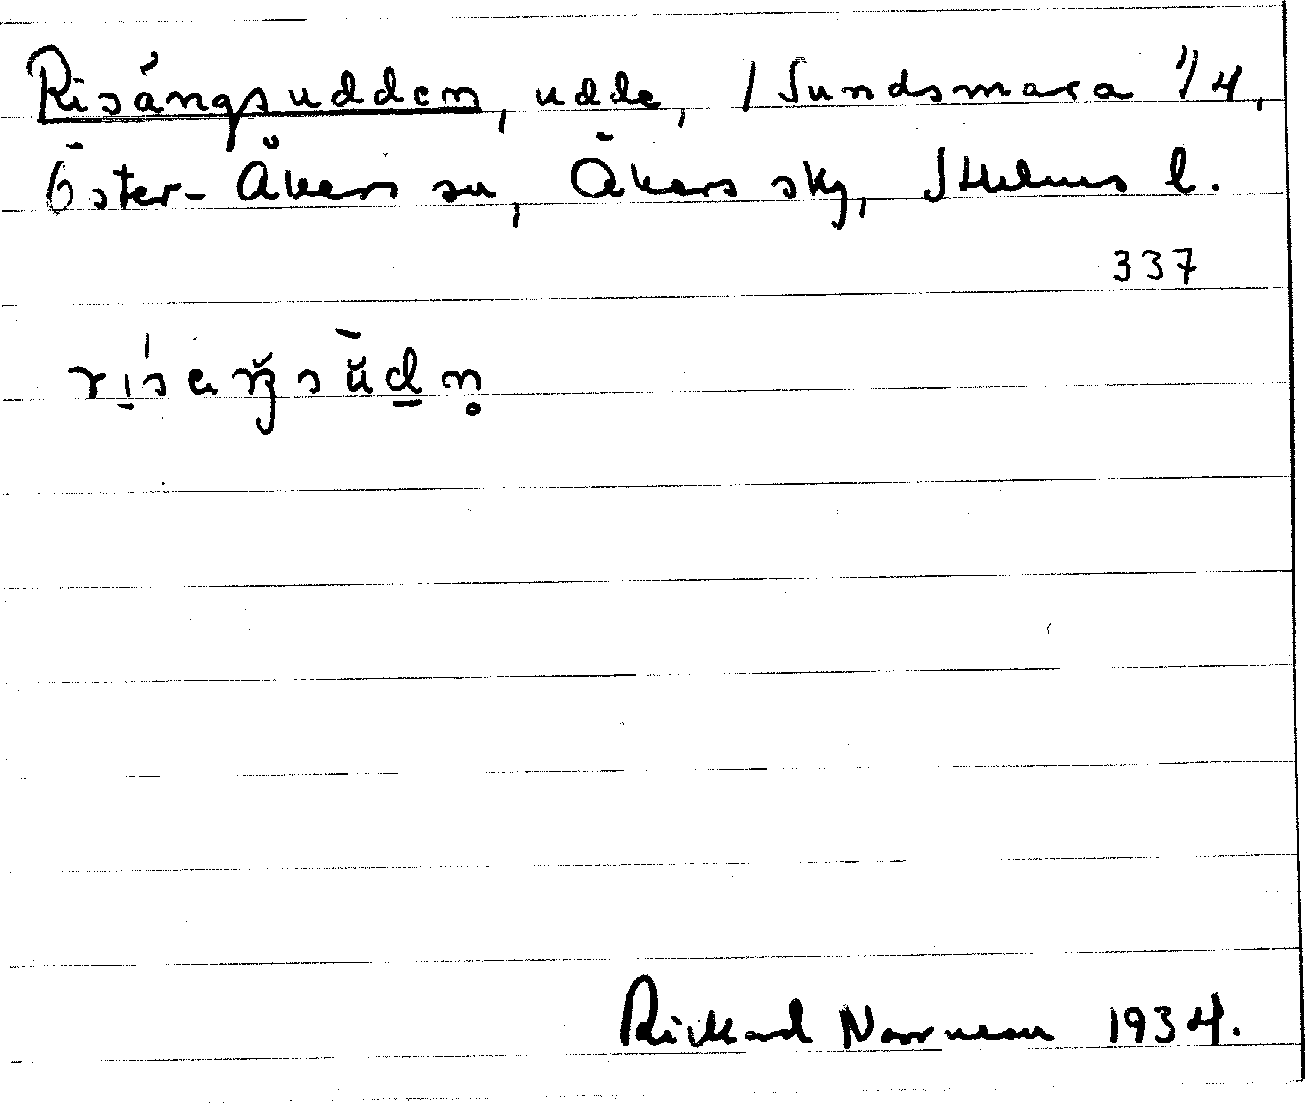 Risängsudden, udde, / Sundsmara 1/4,
Öster-Åkers sn, Åkers sky, Sthlms l.
337
Rickard Norrman 1934.